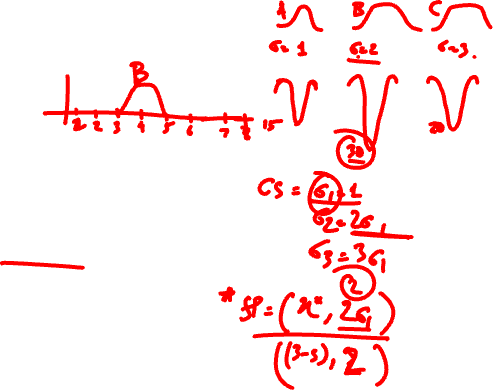 A B C
σ=1 σ=2 σ=3.
B
1 2 3 4 5 6 7 8
15 30 20
CS = σ₁=1
σ₂=2σ₁
σ₃=3σ₁
2
* ff=(x*, 2σ₁)
((3-5), 2)